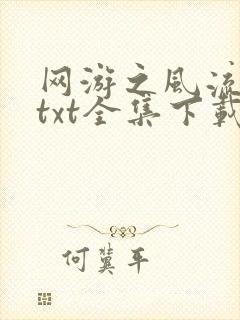 网游之风流
txt全集下载
何冀平